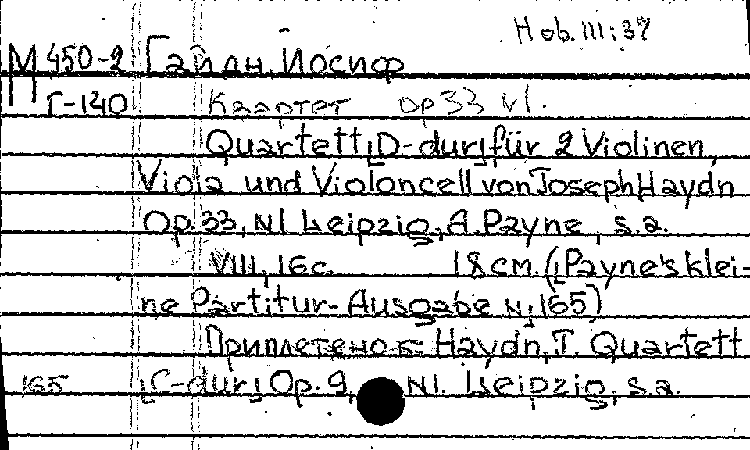 Hob. III:37
М 450-2 Гайдн, Иосиф
Г-140 Квартет op 33 №1.
Quartett [D-dur] für 2 Violinen,
Viola und Violoncell von Joseph Haydn
Op. 33, N1. Leipzig, A. Payne, s.a.
VIII, 16 с. 18 см. ([Payne's klei-
ne Partitur-Ausgabe N. 165)
Приплетено к: Haydn, J. Quartett
165 [C-dur] Op. 9, N1. Leipzig, s.a.